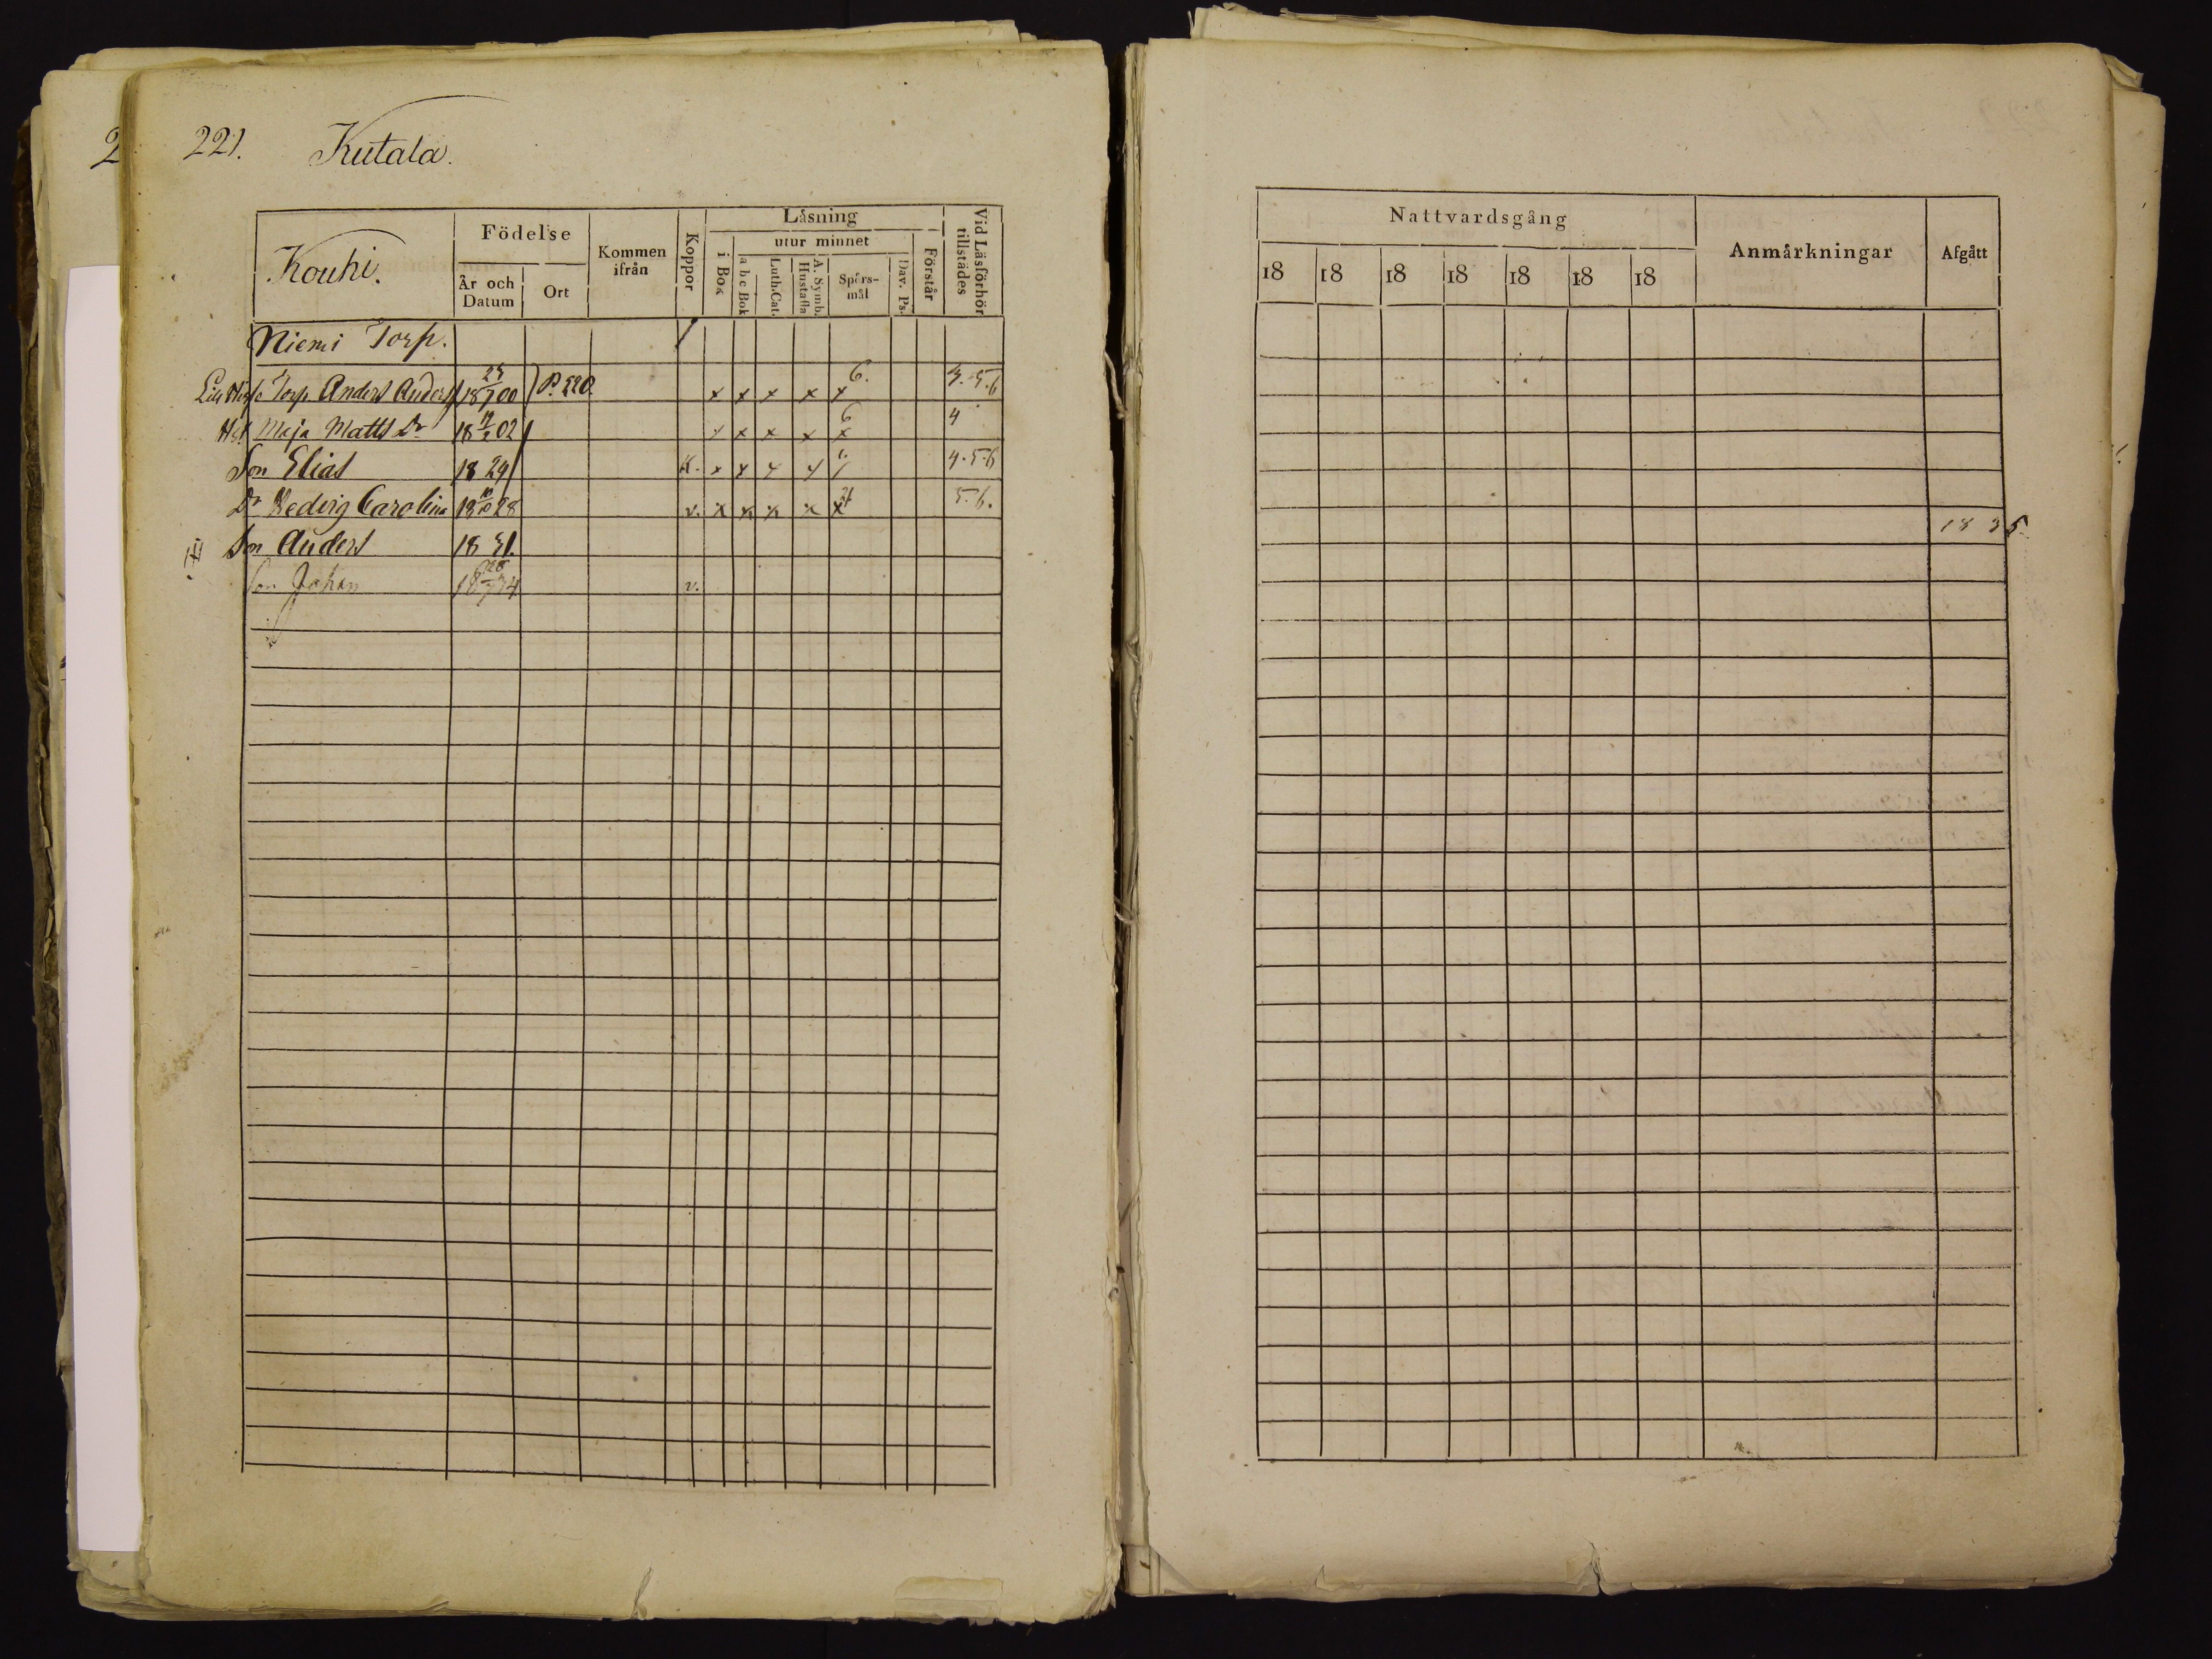 221. Kutala.
Kouhi.
Födelse
År och Datum
Ort
Kommen ifrån
Koppor
Låsning
i Bok
utur minnet
a b c Bok
Luth. Cat.
A. Symb. Hustafla
Spörs-mål
Dav. Ps.
Förstår
Vid Läsförhör tillstädes
Niemi Torp.
Torp. Anders Anders 18 00 P. 220. x x x x x 6. 3.5.6
Hst Maja Matts Dr 18 02 x x x x 6 4
Son Elias 18 29 4.5.6
Dr Hedvig Carolina 18 28 v. x x x x x 5.6.
Son Anders 18 31.
Son Johan 18 34 v.
Nattvardsgång
18 18 18 18 18 18 18
Anmårkningar
Afgått
1835.